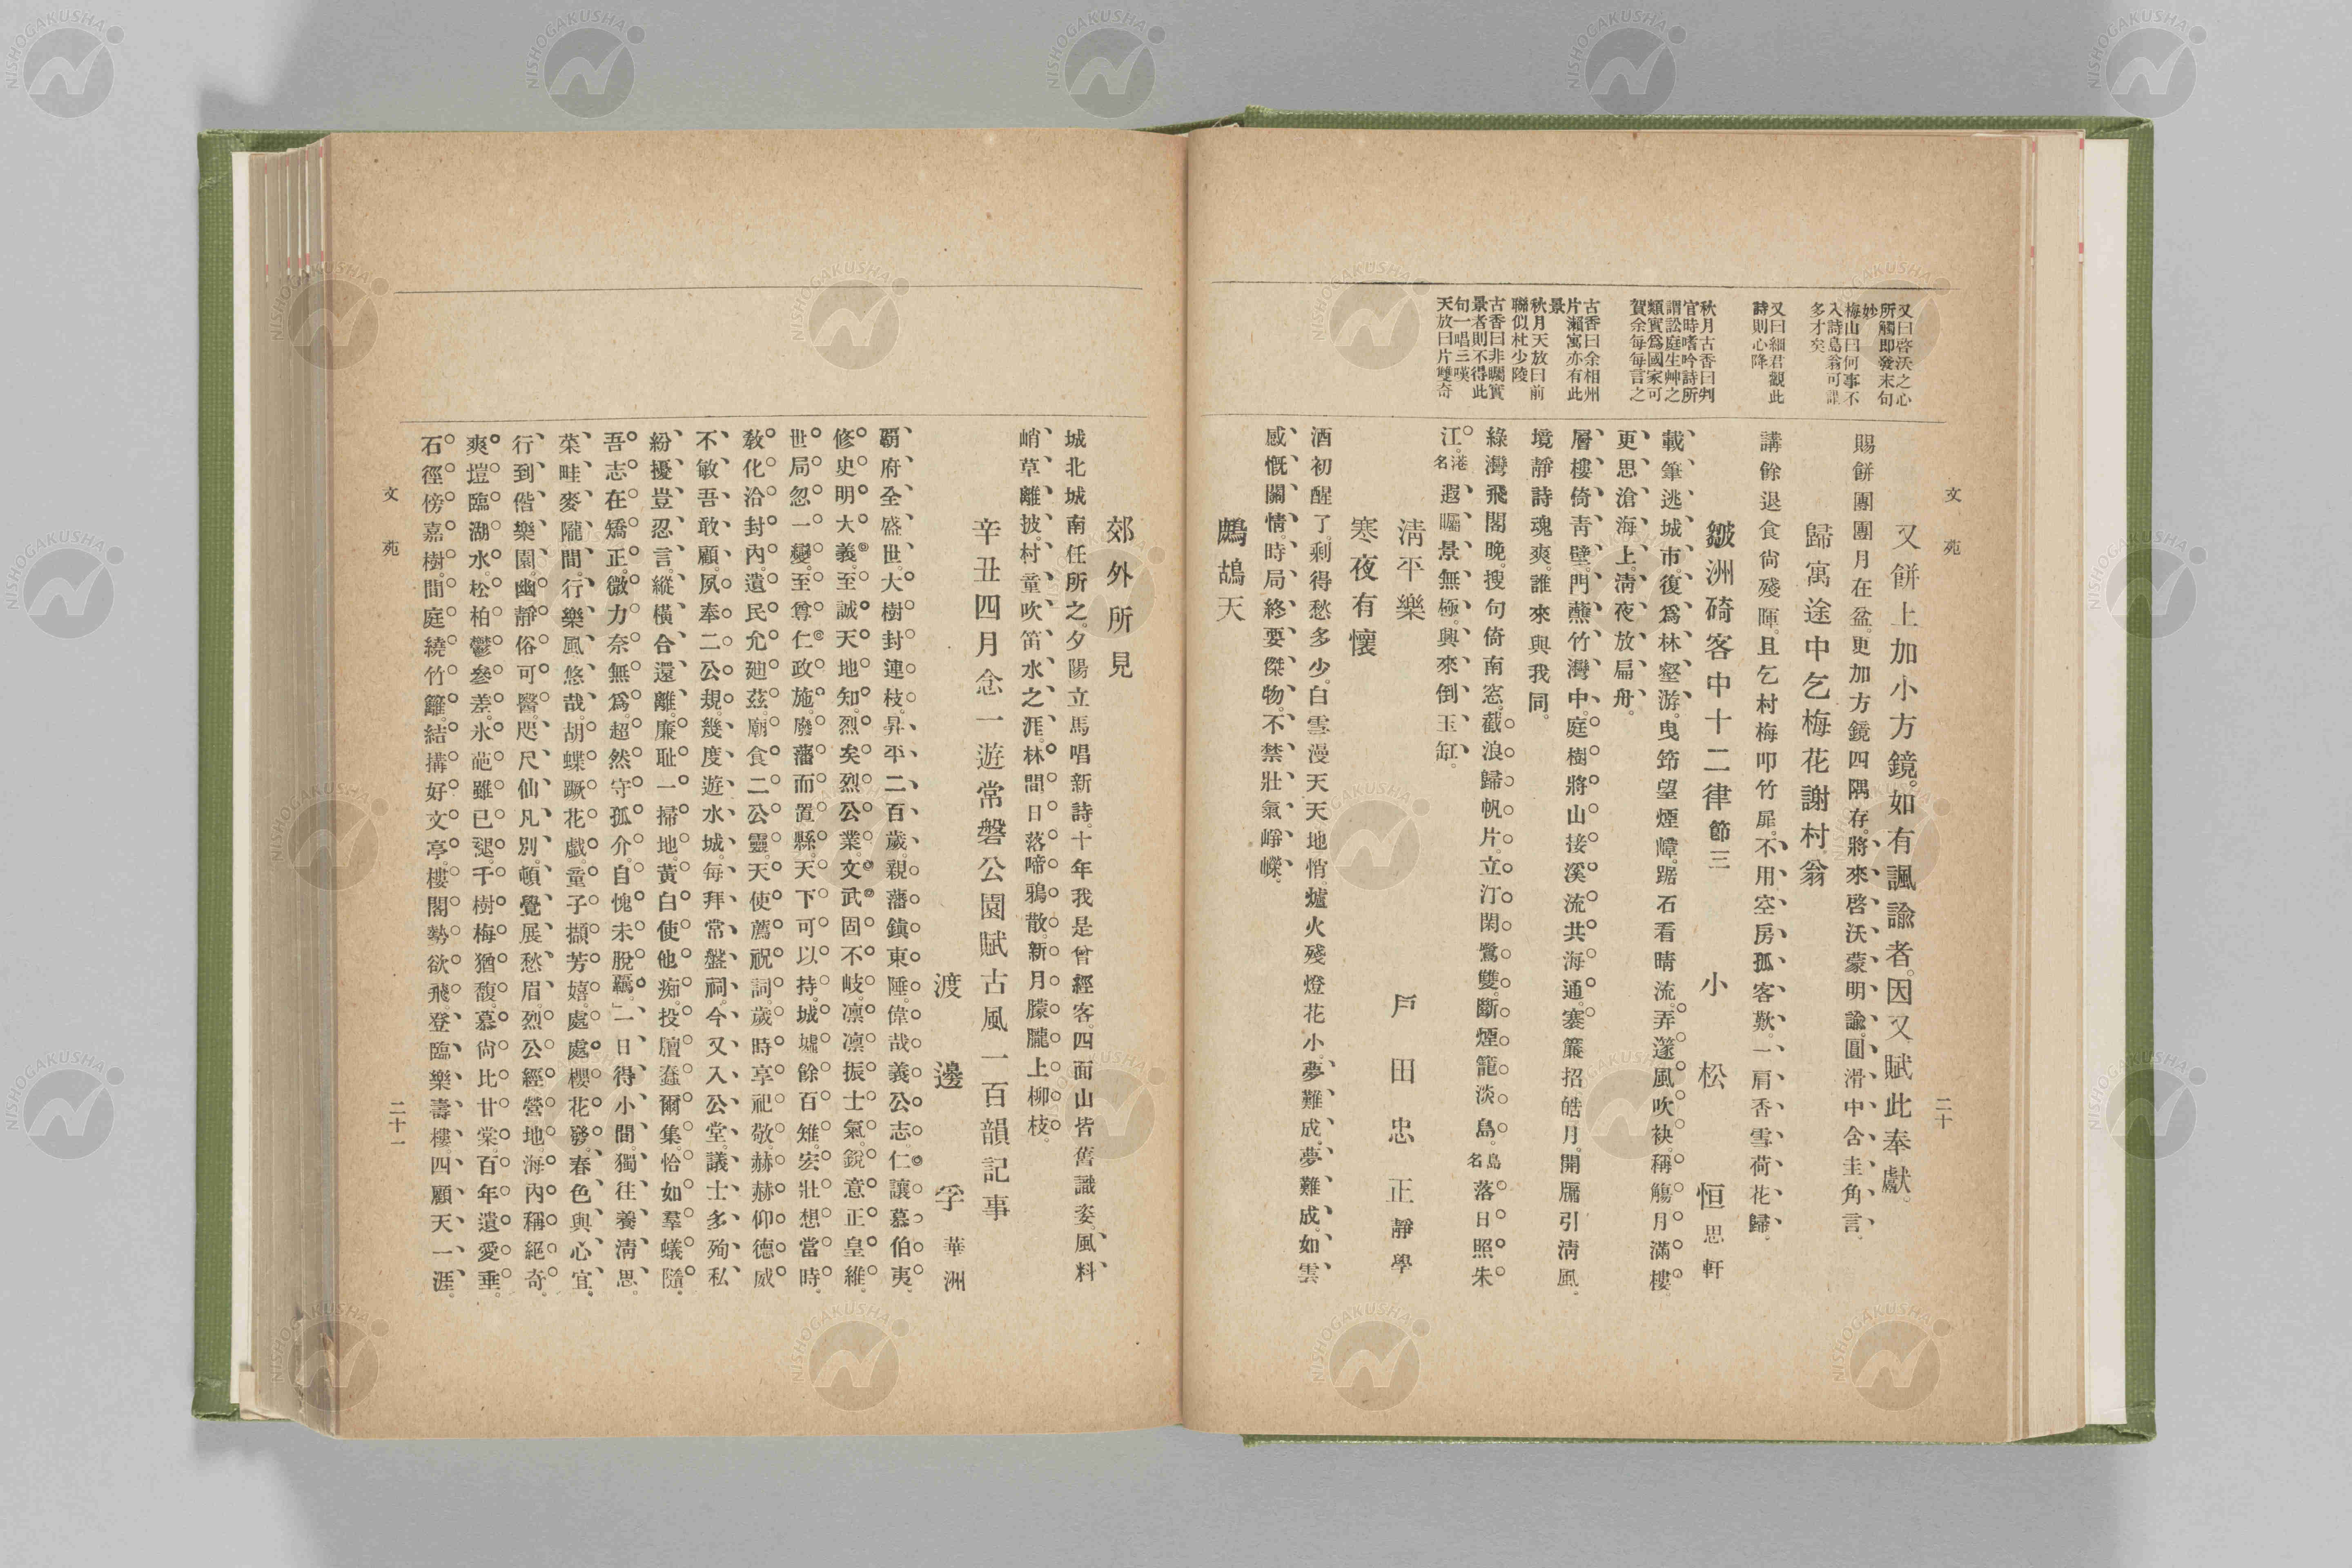 文苑
二十
又曰啓沃之心
所觸即發末句
妙
梅山曰何事不
入詩島翁可謂
多才矣
又曰細君觀此
詩則心降
秋月古香曰判
官時嗜吟詩所
謂訟庭生艸之
類實爲國家可
賀余每每言之
古香曰余相州
片瀨寓亦有此
景
秋月天放曰前
聯似杜少陵
古香曰非矚實
景者則不得此
句一唱三嘆
天放曰片雙奇
又餅上加小方鏡。如有諷諭者。因又賦此奉獻。
賜餅團團月在盆。更加方鏡四隅存。將來啓沃蒙明諭。圓滑中含圭角言。
歸寓途中乞梅花謝村翁
講餘退食尙殘暉。且乞村梅叩竹扉。不用空房孤客歎。一肩香雪荷花歸。
皺洲碕客中十二律節三 小松恒思軒
載筆逃城市。復爲林壑游。曳筇望煙嶂。踞石看晴流。弄篴風吹袂。稱觴月滿樓。
更思滄海上。淸夜放扁舟。
層樓倚靑壁。門蘸竹灣中。庭樹將山接。溪流共海通。褰簾招皓月。開牖引淸風。
境靜詩魂爽。誰來與我同。
綠灣飛閣晚。搜句倚南窓。截浪歸帆片。立汀閑鷺雙。斷煙籠淡島。島名落日照朱
江。港名遐矚景無極。興來倒玉缸。
淸平樂 戶田忠正靜學
寒夜有懷
酒初醒了。剩得愁多少。白雪漫天天地悄。爐火殘燈花小。夢難成。夢難成。如雲
感慨關情。時局終要傑物。不禁壯氣崢嶸。
鷓鴣天
郊外所見
城北城南任所之。夕陽立馬唱新詩。十年我是曾經客。四面山皆舊識姿。風料
峭。草離披。村童吹笛水之涯。林間日落啼鴉散。新月朦朧上柳枝。
辛丑四月念一遊常磐公園賦古風一百韻記事
渡邊孚華洲
覇府全盛世。大樹封連枝。昇平二百歲。親藩鎭東陲。偉哉義公志。仁讓慕伯夷。
修史明大義。至誠天地知。烈矣烈公業。文武固不岐。凛凛振士氣。銳意正皇維。
世局忽一變。至尊仁政施。廢藩而置縣。天下可以持。城墟餘百雉。宏壯想當時。
敎化洽封內。遺民允廸茲。廟食二公靈。天使薦祝詞。歲時享祀敬。赫赫仰德威
不敏吾敢顧。夙奉二公規。幾度遊水城。每拜常盤祠。今又入公堂。議士多殉私
紛擾豈忍言。縱橫合還離。廉耻一掃地。黃白使他痴。投膻蠢爾集。恰如羣蟻隨。
吾志在矯正。微力奈無爲。超然守孤介。自愧未脫羈。」一日得小間。獨往養淸思。
菜畦麥隴間。行樂風悠哉。胡蝶蹶花戲。童子擷芳嬉。處處櫻花發。春色與心宜。
行到偕樂園。幽靜俗可醫。咫尺仙凡別。頓覺展愁眉。烈公經營地。海內稱絕奇。
爽塏臨湖水。松柏鬱參差。氷葩雖已褪。千樹梅猶馥。慕尙比甘棠。百年遺愛垂。
石徑傍嘉樹。間庭繞竹籬。結搆好文亭。樓閣勢欲飛。登臨樂壽樓。四顧天一涯。
文苑
二十一